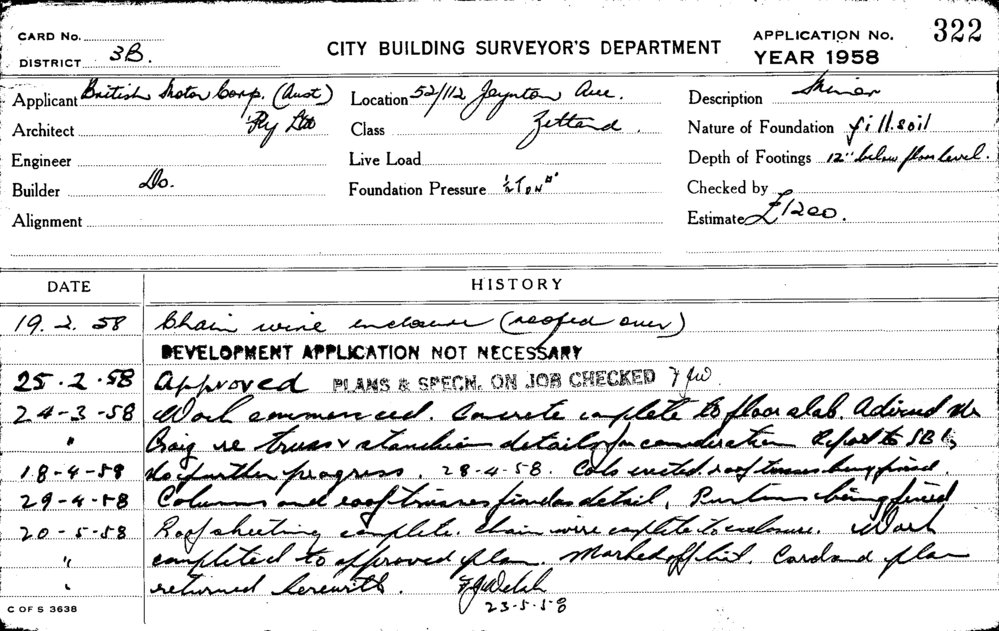 CARD No.
DISTRICT 3B.
CITY BUILDING SURVEYOR'S DEPARTMENT
APPLICATION No. 322
YEAR 1958
Applicant British Motor Corp. (Aust) Location 52/112 Joynton Ave. Description
Pty Ltd
Architect Class Zetland. Nature of Foundation fill.soil
Engineer Live Load Depth of Footings 12" below floor level.
Builder Do. Foundation Pressure ½ Ton □' Checked by
Alignment Estimate £1200.
DATE HISTORY
19. 2. 58 Chain wire enclosure (roofed over)
DEVELOPMENT APPLICATION NOT NECESSARY
25.2.58 Approved PLANS & SPECN. ON JOB CHECKED
24-3-58 Work commenced. Concrete complete to floor slab. Advised Mr
" Craig re truss & stanchion details for consideration Report to SBI,
18-4-58 No further progress 28-4-58. Cols erected. roof trusses being fixed.
29-4-58 Columns and roof trusses fixed as detail. Purlins being fixed
20-5-58 Roof sheeting complete. Chain wire complete to enclosure. Work
" completed to approved plan. Marked off list. Card and plan
" returned herewith. FJWelsh
23-5-58
C OF S 3638